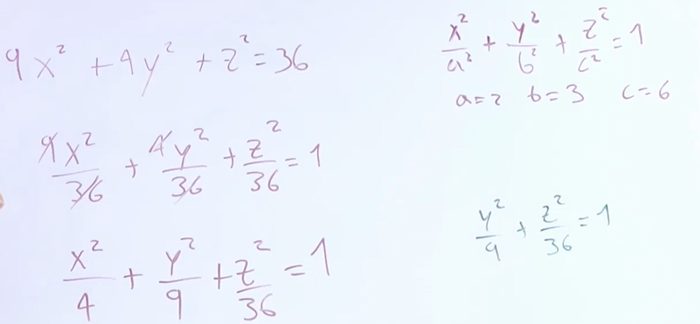 9x² + 4y² + z² = 36
9x²/36 + 4y²/36 + z²/36 = 1
x²/4 + y²/9 + z²/36 = 1
x²/a² + y²/b² + z²/c² = 1
a=2 b=3 c=6
y²/9 + z²/36 = 1